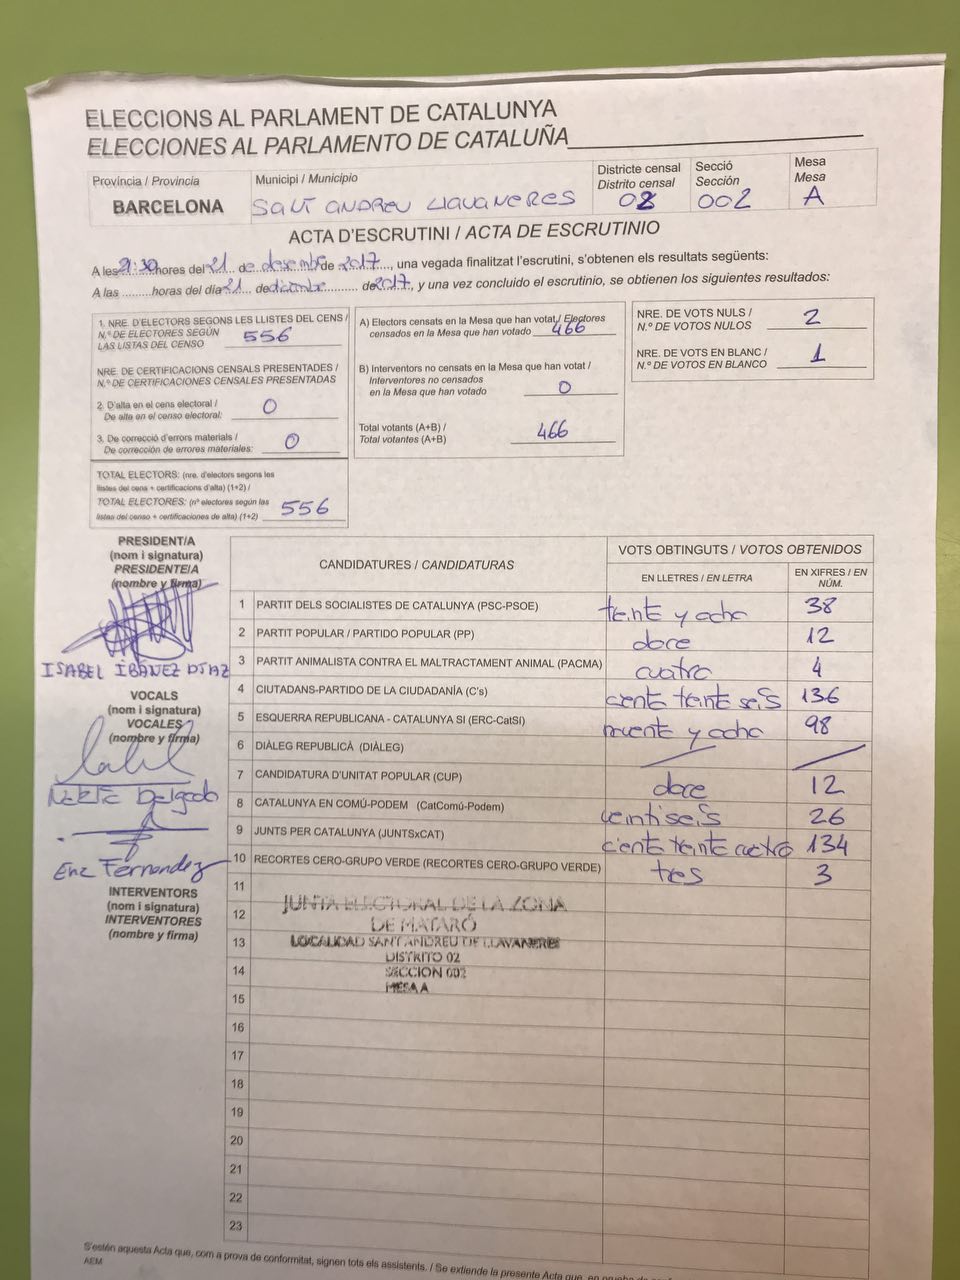 ELECCIONS AL PARLAMENT DE CATALUNYA
ELECCIONES AL PARLAMENTO DE CATALUÑA
Província / Provincia
BARCELONA
Municipi / Municipio
SANT ANDREU LLAVANERES
Districte censal
Distrito censal
02
Secció
Sección
002
Mesa
Mesa
A
ACTA D'ESCRUTINI / ACTA DE ESCRUTINIO
A les 21:30 hores del 21 de desembre de 2017, una vegada finalitzat l'escrutini, s'obtenen els resultats següents:
A las .........horas del día 21 de diciembre de 2017, y una vez concluido el escrutinio, se obtienen los siguientes resultados:
1. NRE. D'ELECTORS SEGONS LES LLISTES DEL CENS /
N.º DE ELECTORES SEGÚN
LAS LISTAS DEL CENSO 556
NRE. DE CERTIFICACIONS CENSALS PRESENTADES /
N.º DE CERTIFICACIONES CENSALES PRESENTADAS
2. D'alta en el cens electoral /
De alta en el censo electoral: 0
3. De correcció d'errors materials /
De corrección de errores materiales: 0
TOTAL ELECTORS: (nre. d'electors segons les
llistes del cens + certificacions d'alta) (1+2) /
TOTAL ELECTORES: (nº electores según las
listas del censo + certificaciones de alta) (1+2) 556
A) Electors censats en la Mesa que han votat / Electores
censados en la Mesa que han votado 466
B) Interventors no censats en la Mesa que han votat /
Interventores no censados
en la Mesa que han votado 0
Total votants (A+B) /
Total votantes (A+B) 466
NRE. DE VOTS NULS /
N.º DE VOTOS NULOS 2
NRE. DE VOTS EN BLANC /
N.º DE VOTOS EN BLANCO 1
PRESIDENT/A
(nom i signatura)
PRESIDENTE/A
(nombre y firma)
ISABEL IBÁÑEZ DIAZ
VOCALS
(nom i signatura)
VOCALES
(nombre y firma)
Delgado
Fernandez
INTERVENTORS
(nom i signatura)
INTERVENTORES
(nombre y firma)
CANDIDATURES / CANDIDATURAS
VOTS OBTINGUTS / VOTOS OBTENIDOS
EN LLETRES / EN LETRA
EN XIFRES / EN NÚM.
1 PARTIT DELS SOCIALISTES DE CATALUNYA (PSC-PSOE) treinta y ocho 38
2 PARTIT POPULAR / PARTIDO POPULAR (PP) doce 12
3 PARTIT ANIMALISTA CONTRA EL MALTRACTAMENT ANIMAL (PACMA) cuatro 4
4 CIUTADANS-PARTIDO DE LA CIUDADANÍA (C's) ciento treinta seis 136
5 ESQUERRA REPUBLICANA - CATALUNYA SI (ERC-CatSI) noventa y ocho 98
6 DIÀLEG REPUBLICÀ (DIÀLEG)
7 CANDIDATURA D'UNITAT POPULAR (CUP) doce 12
8 CATALUNYA EN COMÚ-PODEM (CatComú-Podem) veintiseis 26
9 JUNTS PER CATALUNYA (JUNTSxCAT) ciento treinta cuatro 134
10 RECORTES CERO-GRUPO VERDE (RECORTES CERO-GRUPO VERDE) tres 3
11
12
13
14
15
16
17
18
19
20
21
22
23
JUNTA ELECTORAL DE LA ZONA
DE MATARÓ
LOCALIDAD SANT ANDREU DE LLAVANERES
DISTRITO 02
SECCION 002
MESA A
S'estén aquesta Acta que, com a prova de conformitat, signen tots els assistents. / Se extiende la presente Acta que, en prueba de
AEM